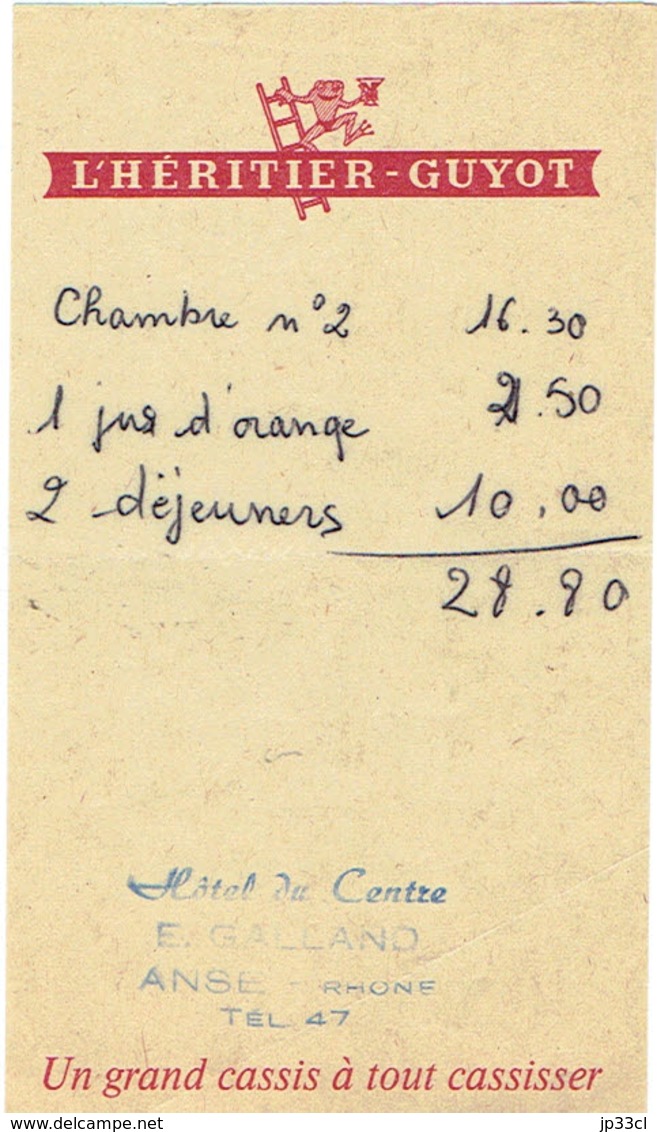 L'HÉRITIER-GUYOT
Chambre n°2 16.30
1 jus d'orange 2.50
2 déjeuners 10,00
28.80
Hôtel du Centre
E. GALLAND
ANSE - RHONE
TÉL 47
Un grand cassis à tout cassisser
www.delcampe.net
jp33cl